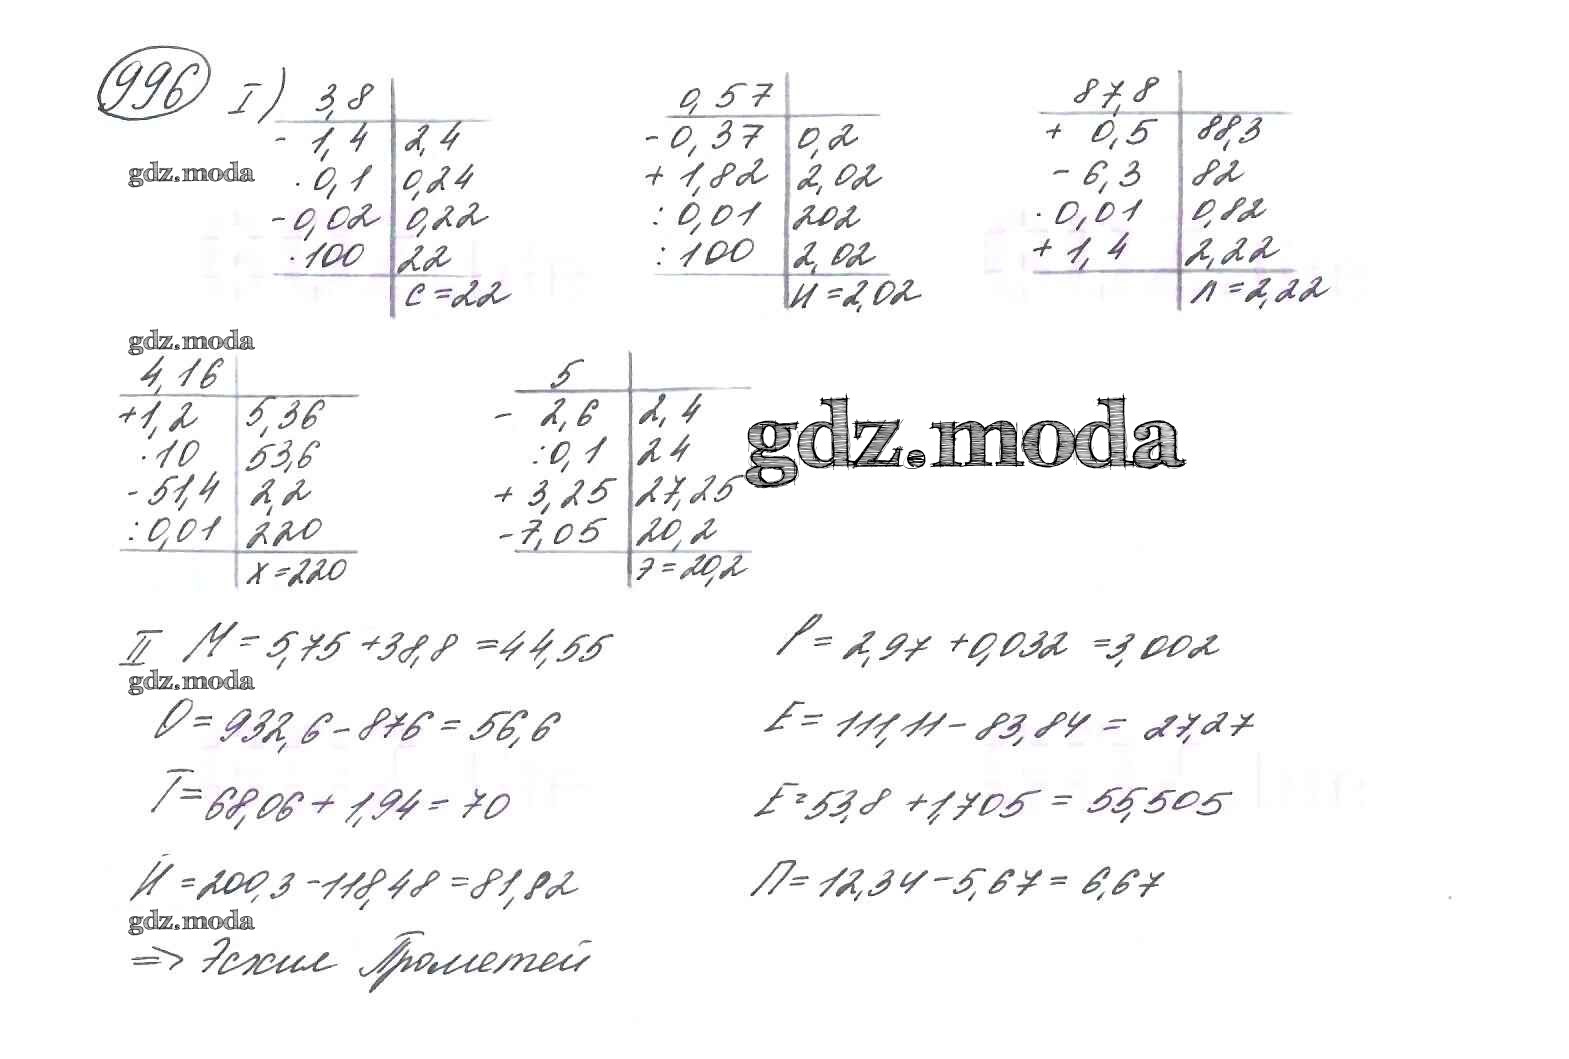 996 I) 3,8
- 1,4 2,4
· 0,1 0,24
- 0,02 0,22
· 100 22
C = 22
0,57
- 0,37 0,2
+ 1,82 2,02
: 0,01 202
: 100 2,02
И = 2,02
87,8
+ 0,5 88,3
- 6,3 82
· 0,01 0,82
+ 1,4 2,22
Л = 2,22
gdz.moda
gdz.moda
4,16
+ 1,2 5,36
· 10 53,6
- 51,4 2,2
: 0,01 220
X = 220
5
- 2,6 2,4
: 0,1 24
+ 3,25 27,25
- 7,05 20,2
Э = 20,2
gdz.moda
II М = 5,75 + 38,8 = 44,55
Р = 2,97 + 0,032 = 3,002
gdz.moda
О = 932,6 - 876 = 56,6
Е = 111,11 - 83,84 = 27,27
Т = 68,06 + 1,94 = 70
Е = 53,8 + 1,705 = 55,505
Й = 200,3 - 118,48 = 81,82
П = 12,34 - 5,67 = 6,67
gdz.moda
=> Эсхил Прометей